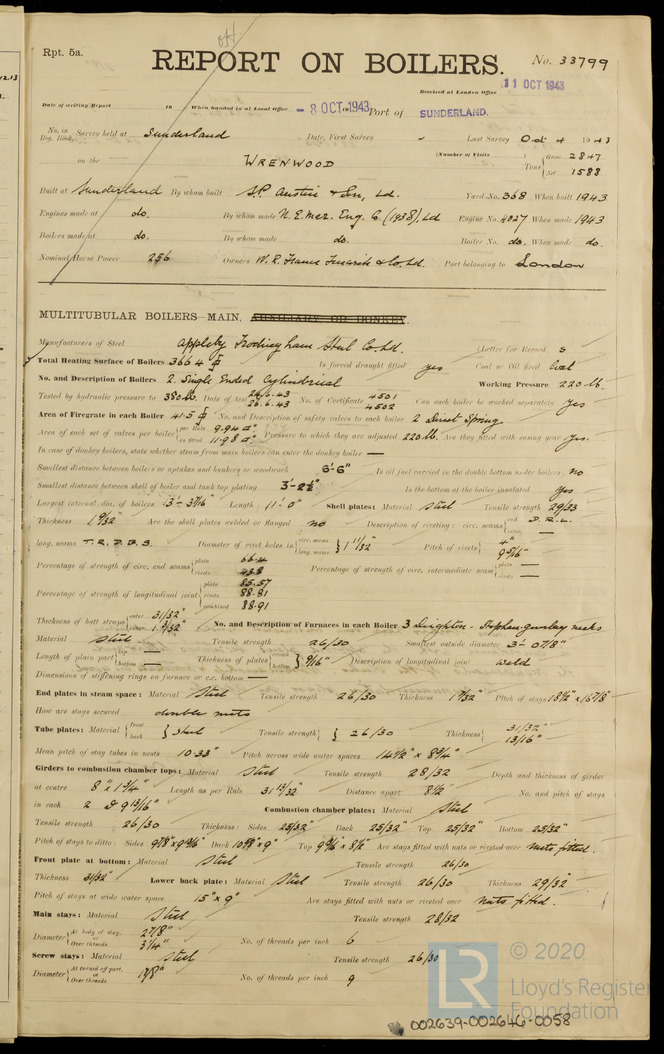 off
Rpt. 5a.
REPORT ON BOILERS.
No. 33799
Received at London Office
11 OCT 1943
Date of writing Report 19 When handed in at Local Office - 8 OCT 1943 Port of SUNDERLAND.
No. in Reg. Book. Survey held at Sunderland Date, First Survey Last Survey Oct 4 1943
on the WRENWOOD (Number of Visits ) Tons { Gross 2847 Net 1588
Built at Sunderland By whom built S.P. Austin & Son, Ld. Yard No. 368 When built 1943
Engines made at do. By whom made N.E. Mar. Eng. Co. (1938), Ld Engine No. 4027 When made 1943
Boilers made at do. By whom made do. Boiler No. do. When made do.
Nominal Horse Power 256 Owners W.R. France Fenwick & Co. Ld. Port belonging to London
MULTITUBULAR BOILERS—MAIN, AUXILIARY OR DONKEY.
Manufacturers of Steel Appleby Frodingham Steel Co. Ld. (Letter for Record S
Total Heating Surface of Boilers 3664 Is forced draught fitted yes Coal or Oil fired Coal
No. and Description of Boilers 2 Single Ended Cylindrical Working Pressure 220 lb.
Tested by hydraulic pressure to 380 lb. Date of test 26.6.43 No. of Certificate 4501 4502 Can each boiler be worked separately yes
Area of Firegrate in each Boiler 41.5 No. and Description of safety valves to each boiler 2 Direct Spring
Area of each set of valves per boiler { per Rule 9.94 as fitted 11.98 Pressure to which they are adjusted 220 lb. Are they fitted with easing gear yes.
In case of donkey boilers, state whether steam from main boilers can enter the donkey boiler —
Smallest distance between boilers or uptakes and bunkers or woodwork 6'-6" Is oil fuel carried in the double bottom under boilers no
Smallest distance between shell of boiler and tank top plating 3'-2½" Is the bottom of the boiler insulated yes
Largest internal dia. of boilers 13'-3 7/16" Length 11'-0" Shell plates: Material steel Tensile strength 29/33
Thickness 1 9/32 Are the shell plates welded or flanged no Description of riveting: circ. seams { end D.R.L. inter. —
long. seams T.R.D.B.S. Diameter of rivet holes in { circ. seams long. seams } 1 11/32" Pitch of rivets { 4" 9 5/16"
Percentage of strength of circ. end seams { plate 66.4 rivets 43.8 Percentage of strength of circ. intermediate seam { plate — rivets —
Percentage of strength of longitudinal joint { plate 85.57 rivets 88.81 combined 88.91
Thickness of butt straps { outer 31/32" inner 1 3/32" No. and Description of Furnaces in each Boiler 3 Deighton - Stephen-gourlay necks
Material steel Tensile strength 26/30 Smallest outside diameter 3'-0 7/8"
Length of plain part { top — bottom — Thickness of plates { crown bottom } 9/16" Description of longitudinal joint weld
Dimensions of stiffening rings on furnace or c.c. bottom —
End plates in steam space: Material steel Tensile strength 26/30 Thickness 1 9/32" Pitch of stays 18½" x 16 7/8"
How are stays secured double nuts
Tube plates: Material { front back } steel Tensile strength { } 26/30 Thickness { 31/32" 13/16"
Mean pitch of stay tubes in nests 10.33" Pitch across wide water spaces 14½" x 8¾"
Girders to combustion chamber tops: Material steel Tensile strength 28/32 Depth and thickness of girder
at centre 8" x 1¾" Length as per Rule 31 13/32" Distance apart 8½" No. and pitch of stays
in each 2 @ 9 13/16" Combustion chamber plates: Material steel
Tensile strength 26/30 Thickness: Sides 25/32" Back 25/32" Top 25/32" Bottom 25/32"
Pitch of stays to ditto: Sides Back Top Are stays fitted with nuts or riveted over nuts fitted.
Front plate at bottom: Material steel Tensile strength 26/30
Thickness 31/32" Lower back plate: Material steel Tensile strength 26/30 Thickness 29/32"
Pitch of stays at wide water space 15" x 9" Are stays fitted with nuts or riveted over nuts fitted.
Main stays: Material steel Tensile strength 28/32
Diameter { At body of stay, 2 7/8" or Over threads 3¼" No. of threads per inch 6
Screw stays: Material steel Tensile strength 26/30
Diameter { At turned off part, or Over threads No. of threads per inch 9
© 2020
LR Lloyd's Register Foundation
002639-002646-0058